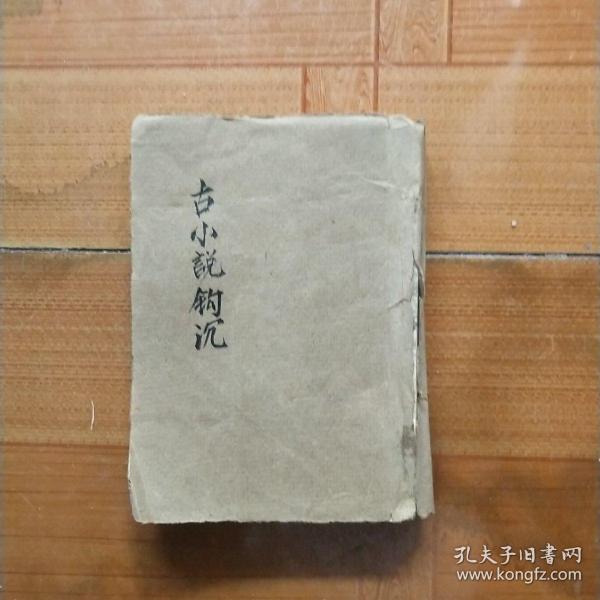 古小說鈎沉
孔夫子旧書网
www.kongfz.com